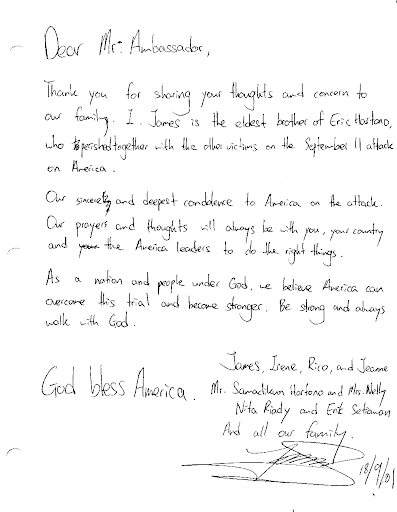 Dear Mr. Ambassador,
Thank you for sharing your thoughts and concern to
our family. I, James is the eldest brother of Eric Hartono,
who perished together with the other victims on the September 11 attack
on America.
Our sincerely and deepest condolence to America on the attack.
Our prayers and thoughts will always be with you, your country
and the America leaders to do the right things.
As a nation and people under God, we believe America can
overcome this trial and become stronger. Be strong and always
walk with God.
God bless America.
James, Irene, Rico, and Jeanne
Mr. Samadikun Hartono and Mrs. Nelly
Nita Riady and Erik Setiawan
And all our family.
18/9/01